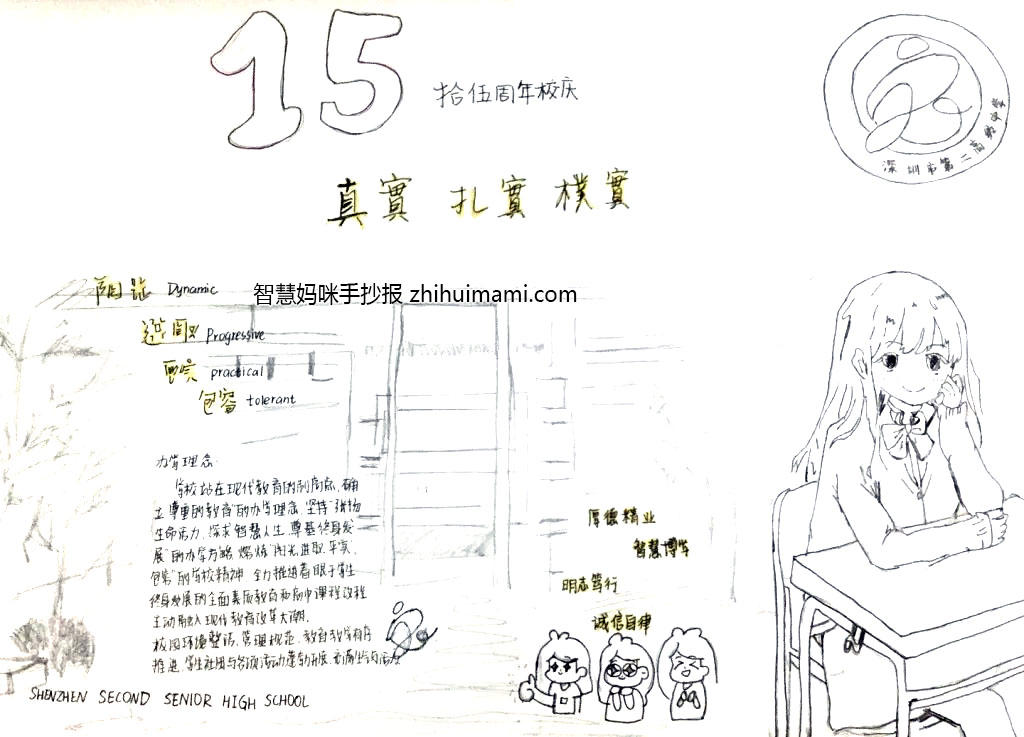 15
拾伍周年校庆
深圳市第二高级中学
真實 扎實 樸實
阳光 Dynamic
智慧妈咪手抄报 zhihuimami.com
进取 Progressive
平实 practical
包容 tolerant
办学理念:
学校站在现代教育的制高点,确
立"尊重的教育"的办学理念,坚持"张扬
生命活力,探求智慧人生,奠基终身发
展"的办学方略,熔炼"阳光,进取,平实,
包容"的学校精神,全力推进着眼于学生
终身发展的全面素质教育和高中课程改程
主动融入现代教育改革大潮.
校园环境整洁,管理规范,教育教学有序
推进,学生社团与各项活动蓬勃开展,
厚德精业
智慧博学
明志笃行
诚信自律
SHENZHEN SECOND SENIOR HIGH SCHOOL